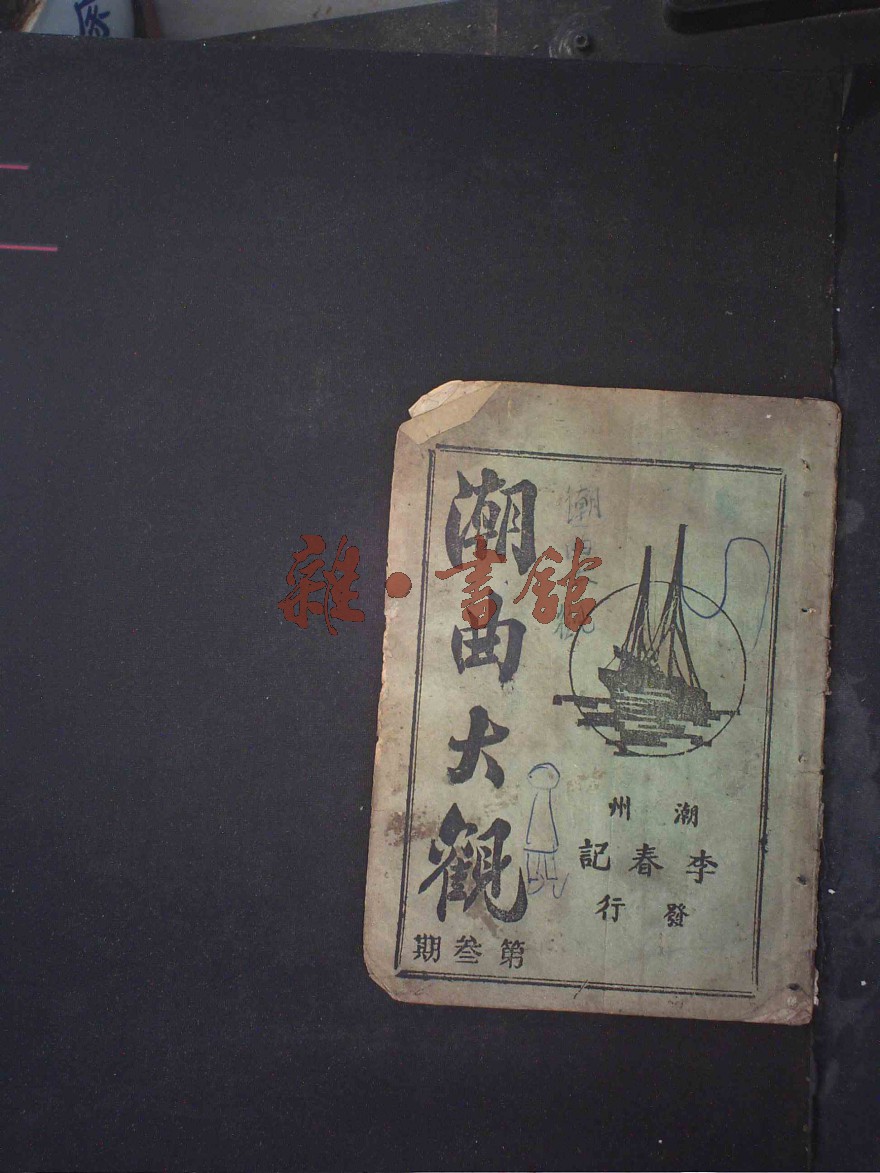 潮曲大觀
第叁期
潮州
李春記
發行
潮曲大觀
雜·書館